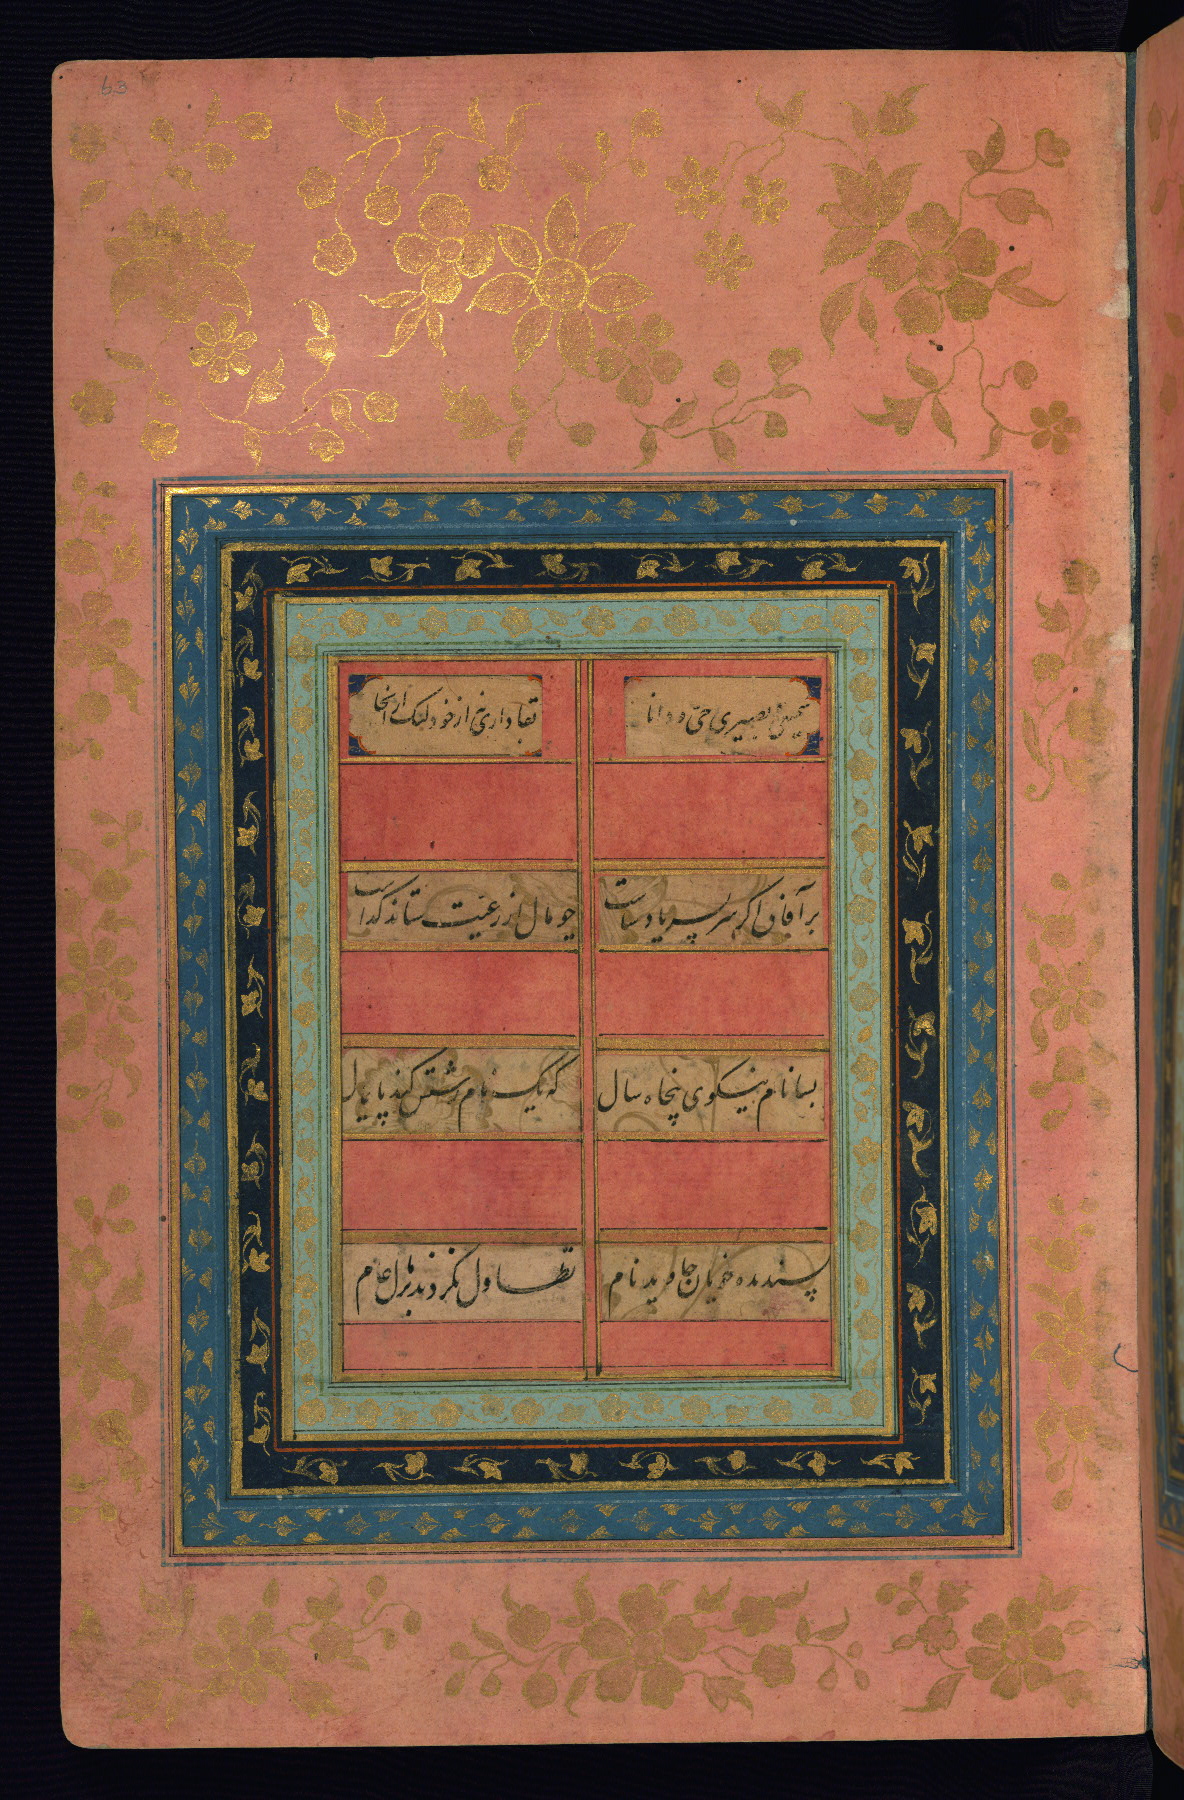 63
سمیعی بصیری حیّ و دانا
بقا داری نی از خود لیک از انجا
بر آفاق اگر سر بسر پادشاست
چو مال از رعیّت ستاند گداست
بسا نام نیکوی پنجاه سال
که یک نام زشتش کند پایمال
پسندیده خویان جاوید نام
تطاول نکردند بر مال عام